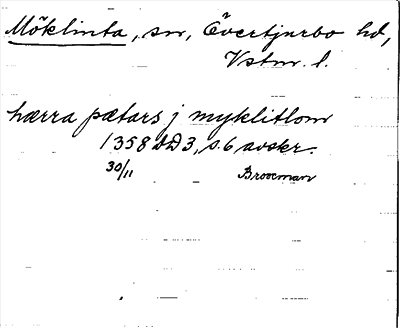 Möklinta, sn, Övertjurbo hd,
Vstm. l.
hærra pætars j myklitlom
1358 DD 3, s. 6 avskr.
30/11 Brooeman